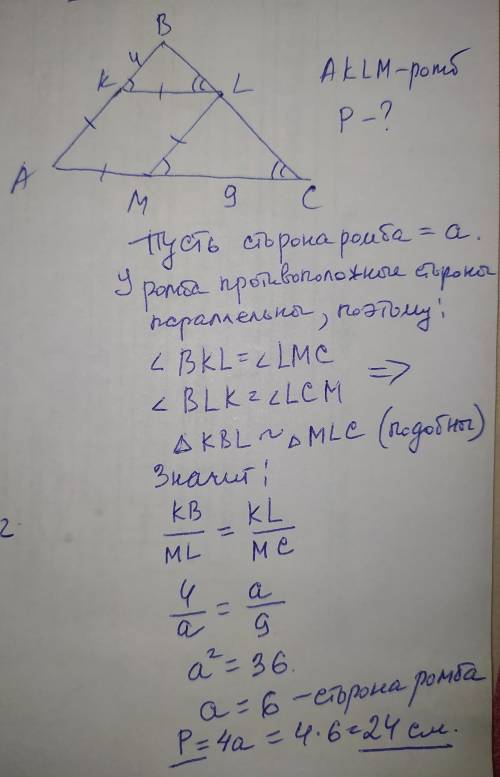 B
4
K
L
A
M
9
C
AKLM-ромб
P-?
Пусть сторона ромба = a.
У ромба противоположные стороны
параллельны, поэтому:
∠BKL=∠LMC
∠BLK=∠LCM
=>
△KBL~△MLC (подобны)
Значит:
KB/ML = KL/MC
2
4/a = a/9
a²=36.
a=6 -сторона ромба
P=4a=4·6=24 см.